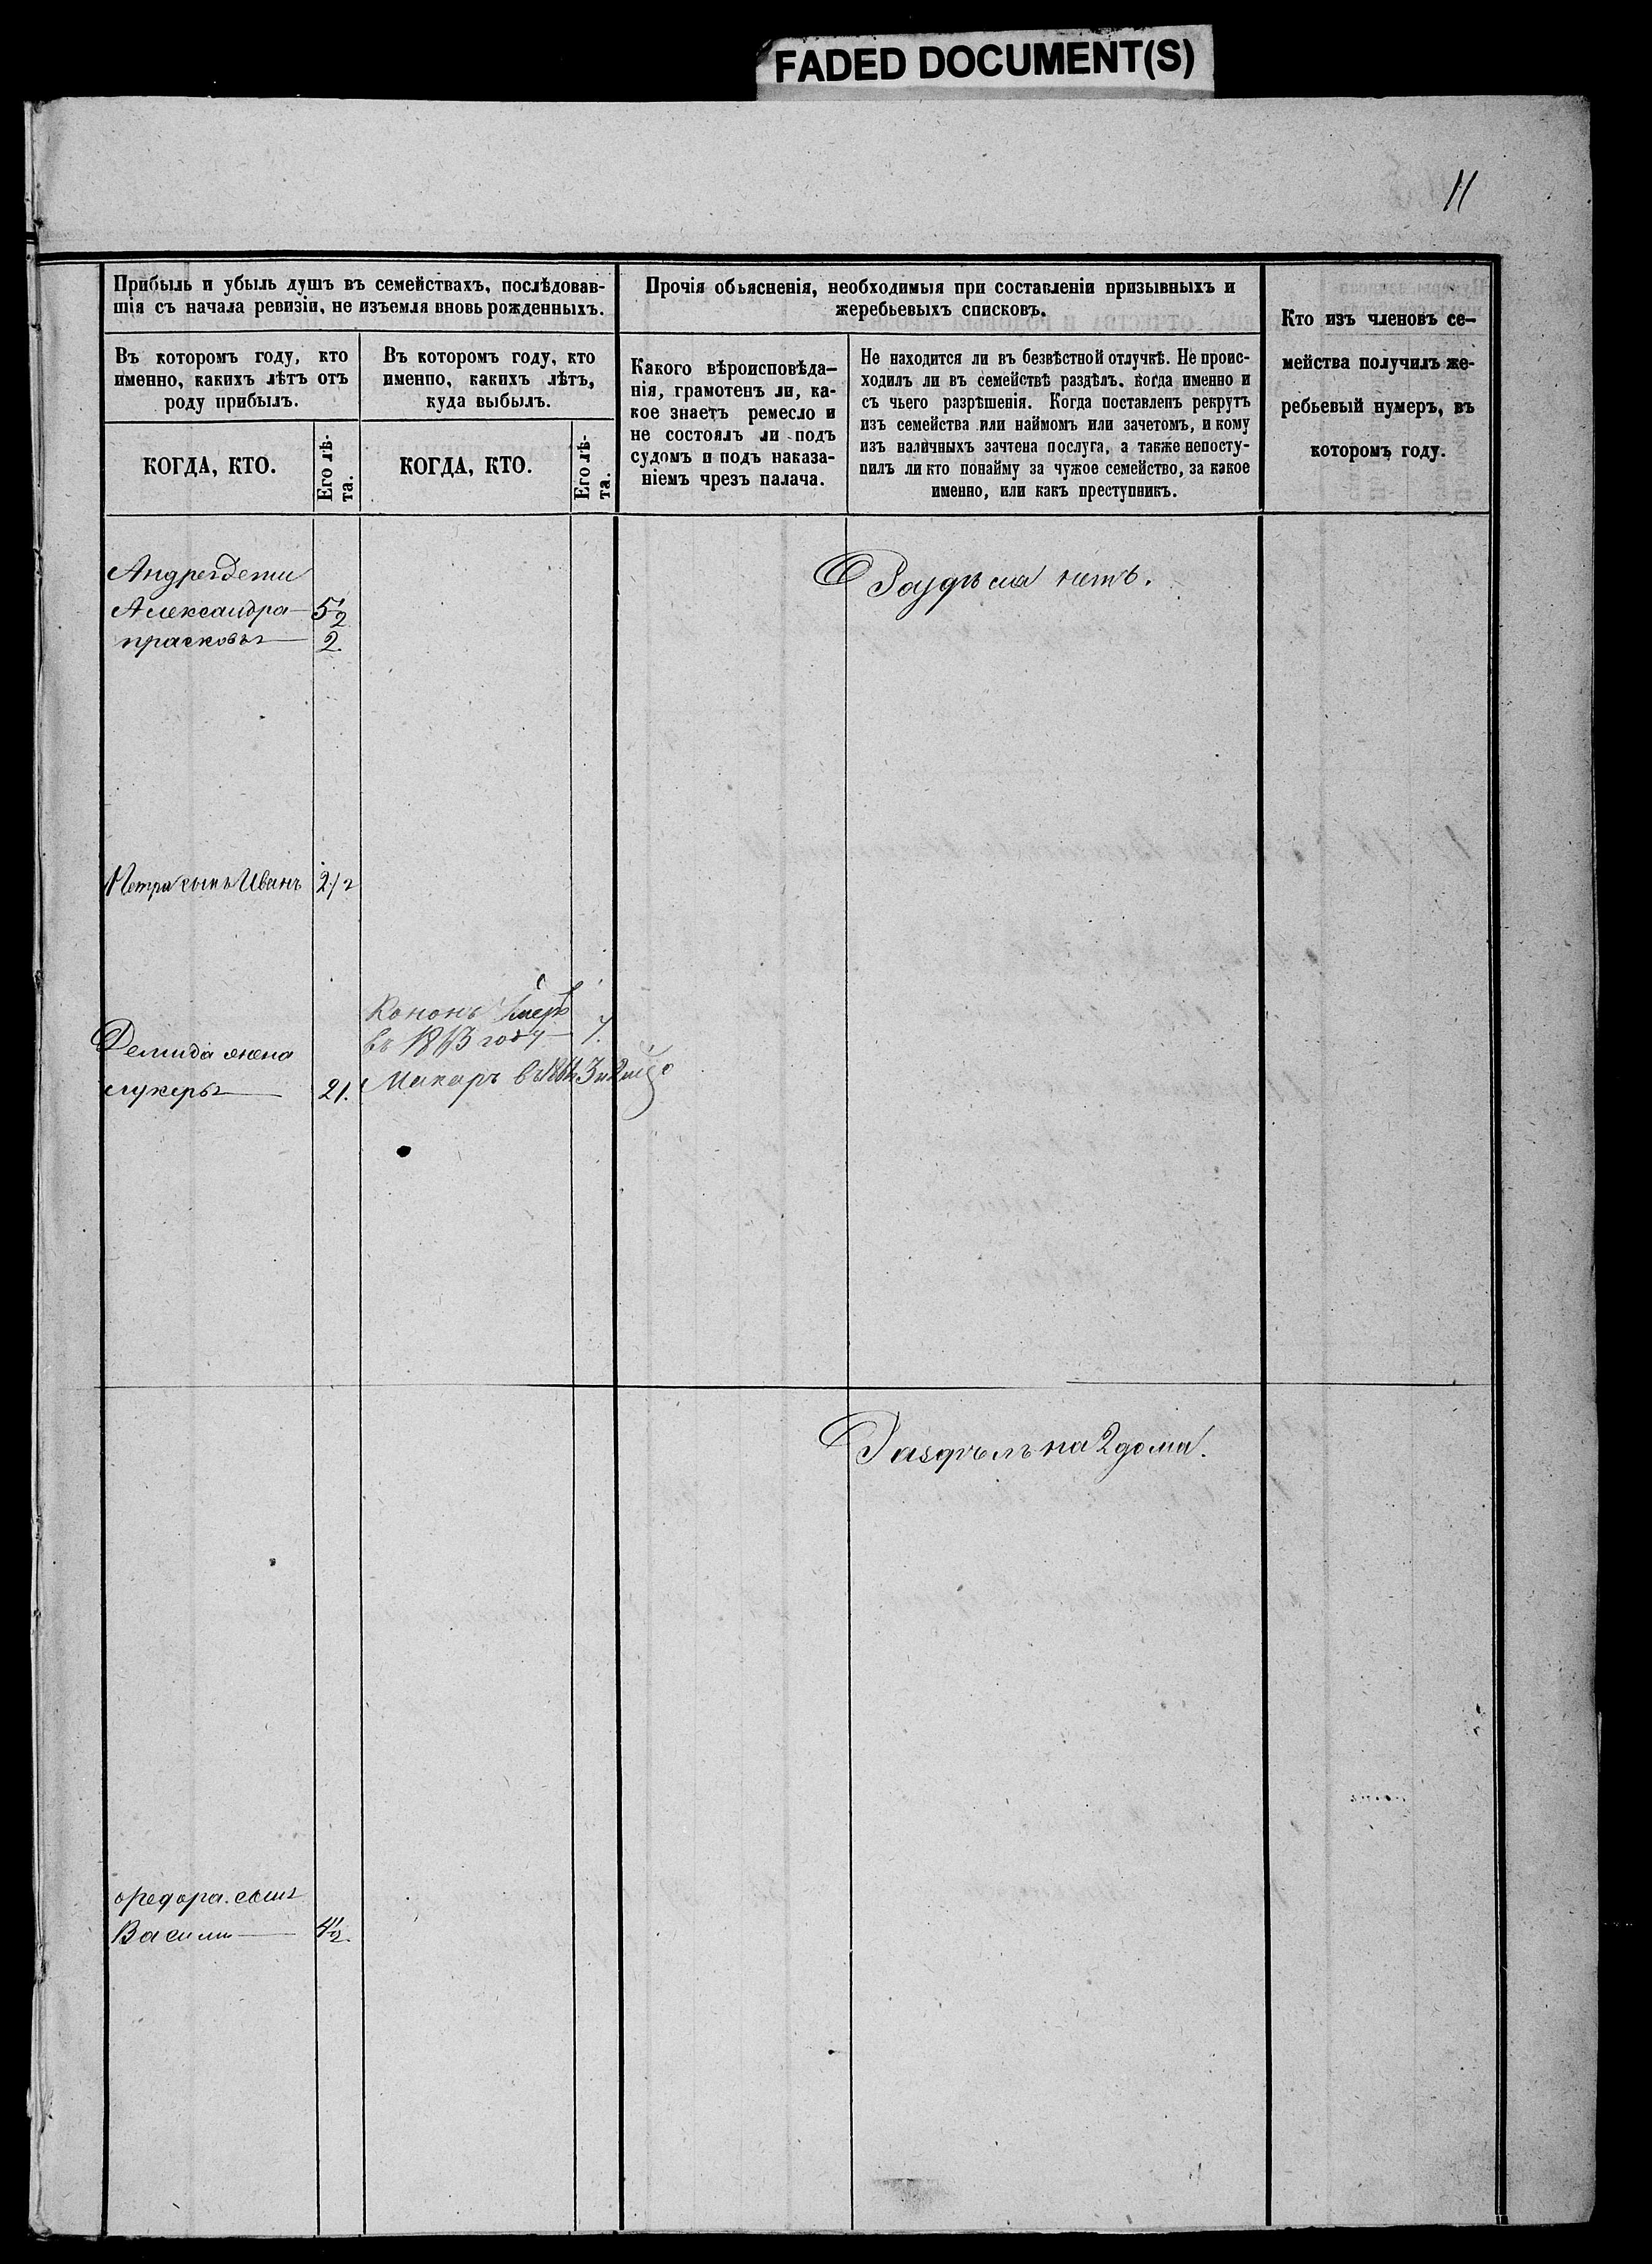 FADED DOCUMENT(S)
11
Прибыль и убыль душъ въ семействахъ, послѣдовав-
шія съ начала ревизіи, не изъемля вновь рожденныхъ.
Прочія объясненія, необходимыя при составленіи призывныхъ и
жеребьевыхъ списковъ.
Кто изъ членовъ се-
мейства получилъ же-
ребьевый нумеръ, въ
которомъ году.
Въ которомъ году, кто
именно, какихъ лѣтъ отъ
роду прибылъ.
Въ которомъ году, кто
именно, какихъ лѣтъ,
куда выбылъ.
Какого вѣроисповѣда-
нія, грамотенъ ли, ка-
кое знаетъ ремесло и
не состоялъ ли подъ
судомъ и подъ наказа-
ніемъ чрезъ палача.
Не находится ли въ безвѣстной отлучкѣ. Не проис-
ходилъ ли въ семействѣ раздѣлъ, когда именно и
съ чьего разрѣшенія. Когда поставленъ рекрутъ
изъ семейства или наймомъ или зачетомъ, и кому
изъ наличныхъ зачтена послуга, а также непосту-
пилъ ли кто понайму за чужое семейство, за какое
именно, или какъ преступникъ.
КОГДА, КТО.
Его лѣ-
та.
КОГДА, КТО.
Его лѣ-
та.
Андрея дети
Александра 5 1/2
прасковья 2.
Раздѣла нетъ.
Петра сынъ Иванъ 2 1/2
Кононъ умеръ
въ 1863 году 7.
Демида жена
лукерья 21.
Макаръ в 3 и 2
Раздѣлъ на 2 дома.
Федора сынъ
Василий 4 1/2.